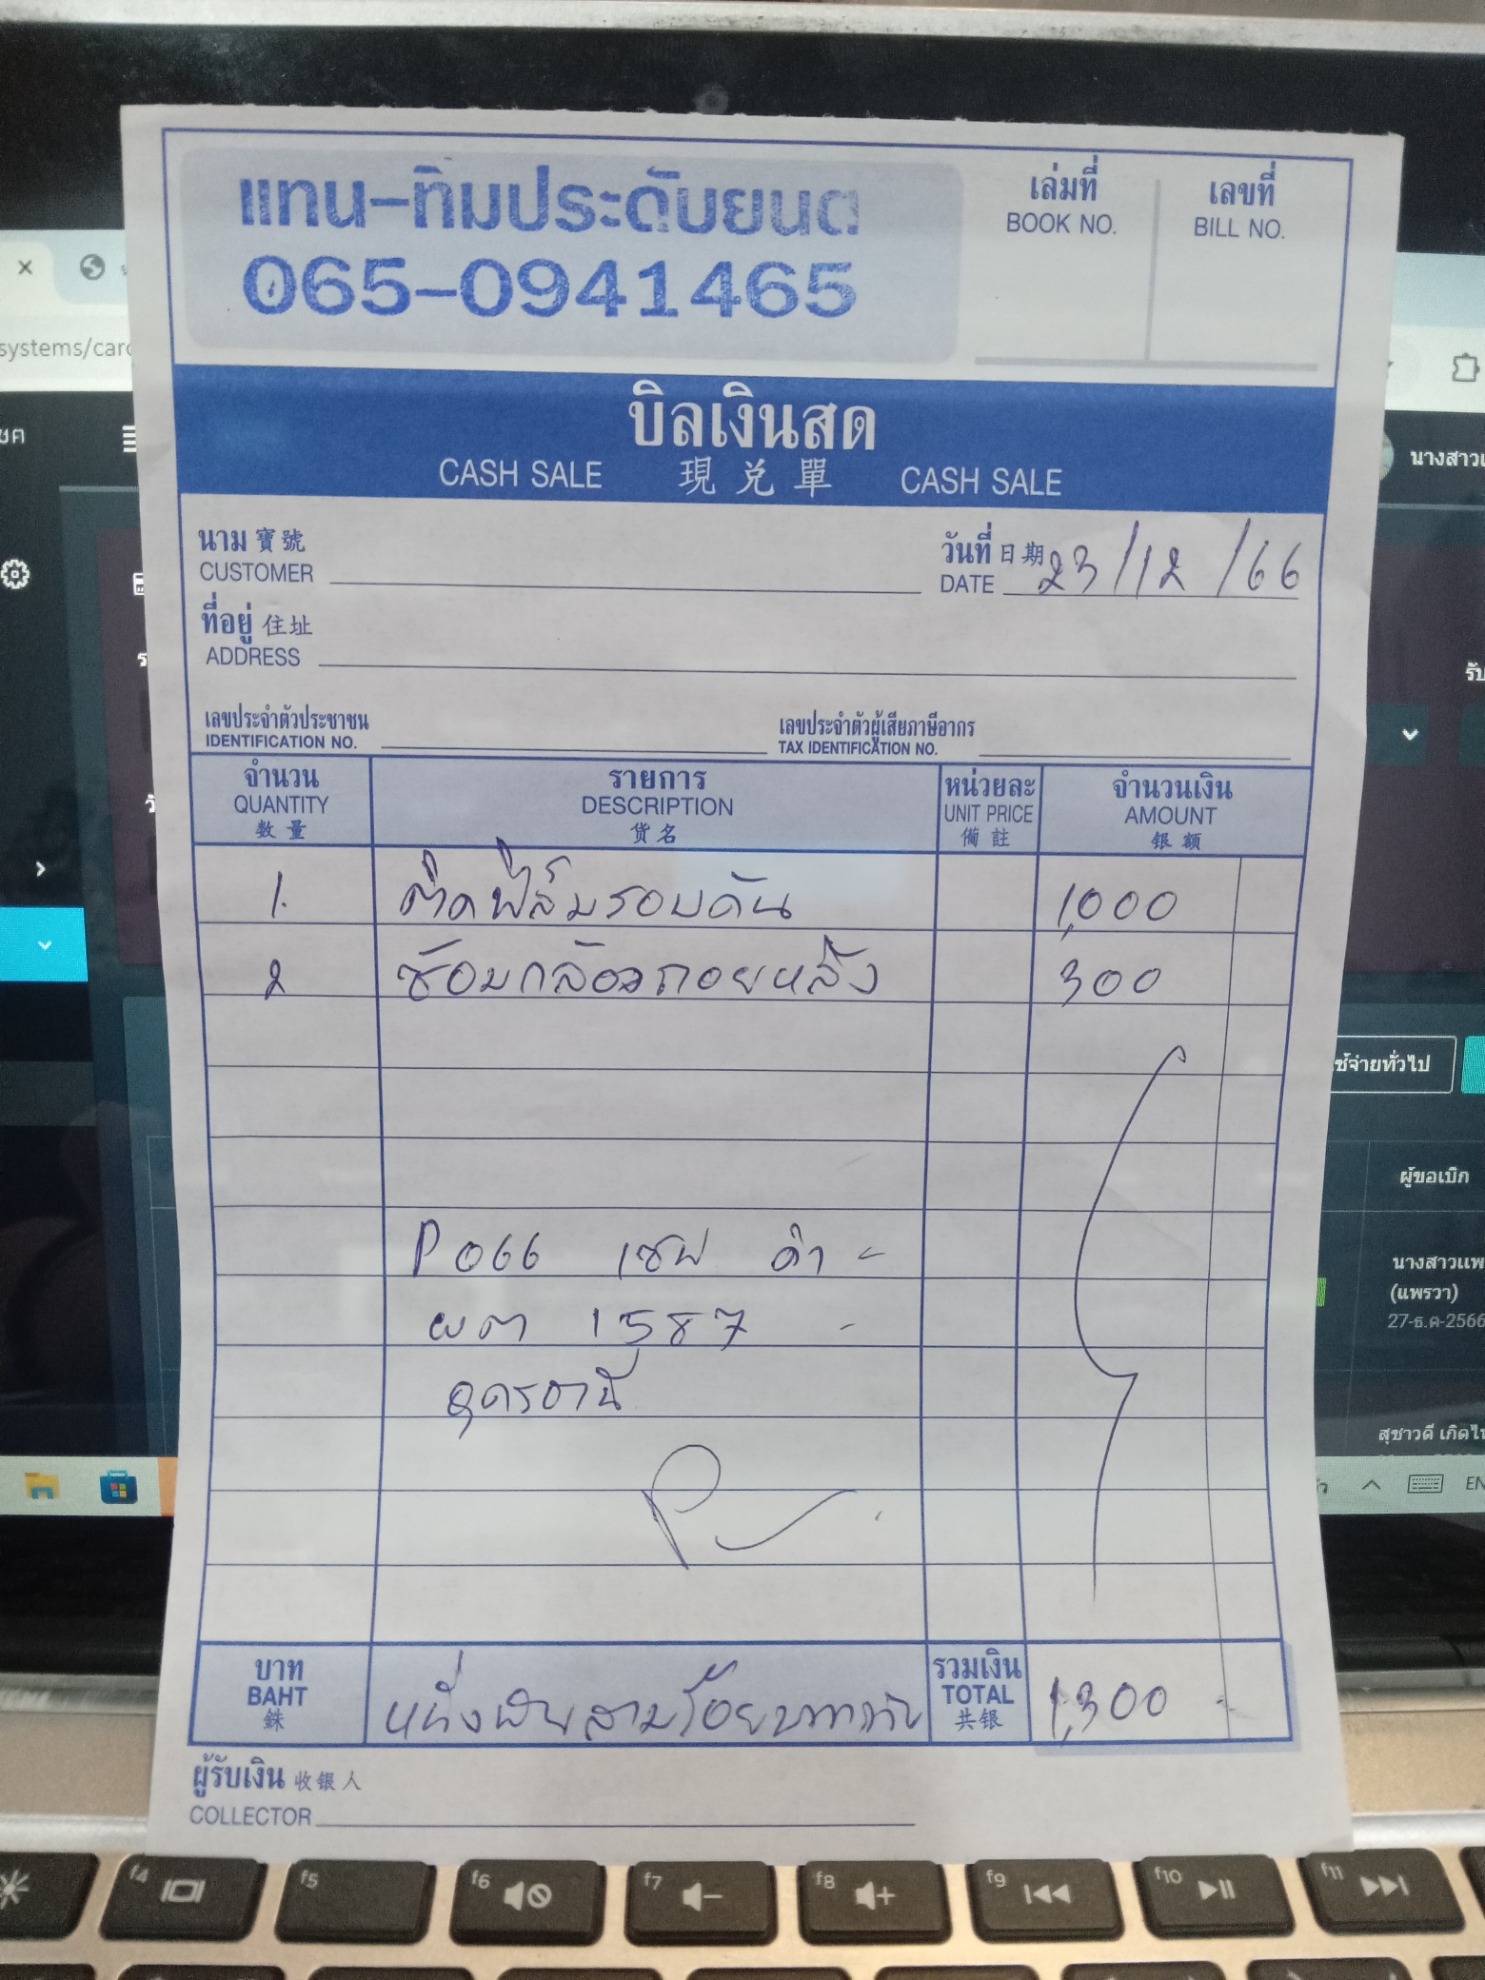 แทน-ทิมประดับยนต
065-0941465
เล่มที่
BOOK NO.
เลขที่
BILL NO.
บิลเงินสด
CASH SALE 現兑單 CASH SALE
นาม 寶號
CUSTOMER
วันที่ 日期
DATE 23/12/66
ที่อยู่ 住址
ADDRESS
เลขประจำตัวประชาชน
IDENTIFICATION NO.
เลขประจำตัวผู้เสียภาษีอากร
TAX IDENTIFICATION NO.
จำนวน
QUANTITY
数量
รายการ
DESCRIPTION
货名
หน่วยละ
UNIT PRICE
備註
จำนวนเงิน
AMOUNT
银额
1. ติดฟิล์มรอบคัน 1,000
2 ซ้อมกล้องถอยหลัง 300
P066 เชฟ ดำ -
ผต 1587 -
อุดรธานี
บาท
BAHT
銖
หนึ่งพันสามร้อยบาทถ้วน
รวมเงิน
TOTAL
共银
1,300 -
ผู้รับเงิน 收银人
COLLECTOR
systems/card
นางสาว
รับ
ใช้จ่ายทั่วไป
ผู้ขอเบิก
นางสาวแพ
(แพรวา)
27-ธ.ค-2566
สุชาวดี เกิดไ
EN
f4
f5
f6
f7
f8
f9
f10
f11